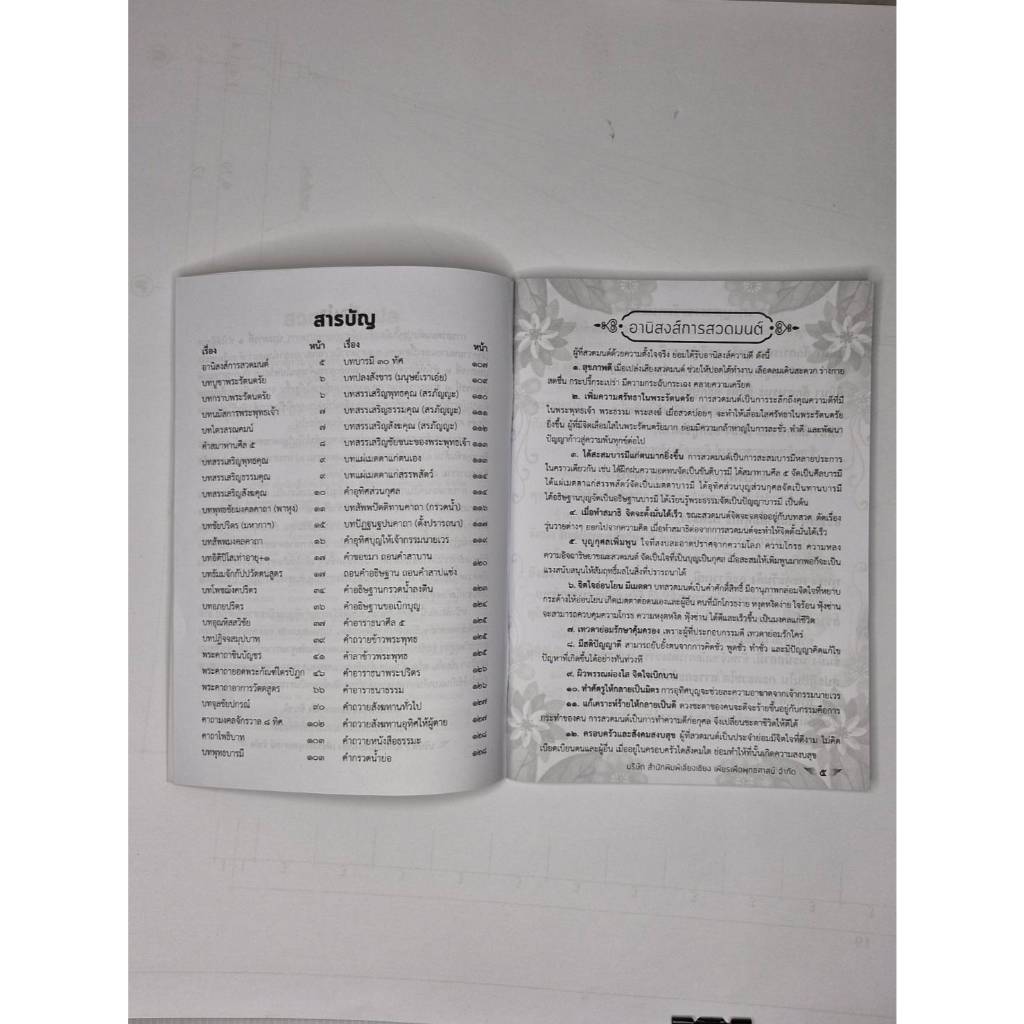 สารบัญ
เรื่อง หน้า เรื่อง หน้า
อานิสงส์การสวดมนต์ ๕ บทบารมี ๓๐ ทัศ ๑๐๗
บทบูชาพระรัตนตรัย ๖ บทปลงสังขาร (มนุษย์เราเอ๋ย) ๑๐๙
บทกราบพระรัตนตรัย ๖ บทสรรเสริญพุทธคุณ (สรภัญญะ) ๑๑๐
บทนมัสการพระพุทธเจ้า ๗ บทสรรเสริญธรรมคุณ (สรภัญญะ) ๑๑๑
บทไตรสรณคมน์ ๗ บทสรรเสริญสังฆคุณ (สรภัญญะ) ๑๑๒
คำสมาทานศีล ๕ ๘ บทสรรเสริญชัยชนะของพระพุทธเจ้า ๑๑๓
บทสรรเสริญพุทธคุณ ๙ บทแผ่เมตตาแก่ตนเอง ๑๑๓
บทสรรเสริญธรรมคุณ ๙ บทแผ่เมตตาแก่สรรพสัตว์ ๑๑๔
บทสรรเสริญสังฆคุณ ๑๐ คำอุทิศส่วนกุศล ๑๑๔
บทพุทธชัยมงคลคาถา (พาหุง) ๑๓ บทสัพพปัตติทานคาถา (กรวดน้ำ) ๑๑๖
บทชัยปริตร (มหากาฯ) ๑๕ บทปัฏฐนฐปนคาถา (ตั้งปรารถนา) ๑๑๗
บทสัพพมงคลคาถา ๑๖ คำอุทิศบุญให้เจ้ากรรมนายเวร ๑๑๙
บทอิติปิโสเท่าอายุ+๑ ๑๗ คำขอขมา ถอนคำสาบาน
บทธัมมจักกัปปวัตตนสูตร ๑๗ ถอนคำอธิษฐาน ถอนคำสาปแช่ง ๑๒๐
บทโพชฌังคปริตร ๓๔ คำอธิษฐานกรวดน้ำลงดิน ๑๒๓
บทอภยปริตร ๓๖ คำอธิษฐานขอเบิกบุญ ๑๒๔
บทอุณหิสสวิชัย ๓๗ คำอาราธนาศีล ๕ ๑๒๕
บทปฏิจจสมุปบาท ๓๙ คำถวายข้าวพระพุทธ ๑๒๕
พระคาถาชินบัญชร ๔๑ คำลาข้าวพระพุทธ ๑๒๕
พระคาถายอดพระกัณฑ์ไตรปิฎก ๔๖ คำอาราธนาพระปริตร ๑๒๖
พระคาถาอาการวัตตสูตร ๖๖ คำอาราธนาธรรม ๑๒๖
บทจุลชัยปกรณ์ ๙๐ คำถวายสังฆทานทั่วไป ๑๒๗
คาถามงคลจักรวาล ๘ ทิศ ๑๐๒ คำถวายสังฆทานอุทิศให้ผู้ตาย ๑๒๗
คาถาโพธิบาท ๑๐๓ คำถวายหนังสือธรรมะ ๑๒๘
บทพุทธบารมี ๑๐๓ คำกรวดน้ำย่อ ๑๒๘
อานิสงส์การสวดมนต์
ผู้ที่สวดมนต์ด้วยความตั้งใจจริง ย่อมได้รับอานิสงส์ความดี ดังนี้
๑. สุขภาพดี เมื่อเปล่งเสียงสวดมนต์ ช่วยให้ปอดได้ทำงาน เลือดลมเดินสะดวก ร่างกาย
สดชื่น กระปรี้กระเปร่า มีความกระฉับกระเฉง คลายความเครียด
๒. เพิ่มความศรัทธาในพระรัตนตรัย การสวดมนต์เป็นการระลึกถึงคุณความดีที่มี
ในพระพุทธเจ้า พระธรรม พระสงฆ์ เมื่อสวดบ่อยๆ จะทำให้เลื่อมใสศรัทธาในพระรัตนตรัย
ยิ่งขึ้น ผู้ที่มีจิตเลื่อมใสในพระรัตนตรัยมาก ย่อมมีความกล้าหาญในการละชั่ว ทำดี และพัฒนา
ปัญญาก้าวสู่ความพ้นทุกข์ต่อไป
๓. ได้สะสมบารมีแก่ตนมากยิ่งขึ้น การสวดมนต์เป็นการสะสมบารมีหลายประการ
ในคราวเดียวกัน เช่น ได้ฝึกฝนความอดทนจัดเป็นขันติบารมี ได้สมาทานศีล ๕ จัดเป็นศีลบารมี
ได้แผ่เมตตาแก่สรรพสัตว์จัดเป็นเมตตาบารมี ได้อุทิศส่วนบุญส่วนกุศลจัดเป็นทานบารมี
ได้อธิษฐานบุญจัดเป็นอธิษฐานบารมี ได้เรียนรู้พระธรรมจัดเป็นปัญญาบารมี เป็นต้น
๔. เมื่อทำสมาธิ จิตจะตั้งมั่นได้เร็ว ขณะสวดมนต์จิตจะจดจ่ออยู่กับบทสวด ตัดเรื่อง
วุ่นวายต่างๆ ออกไปจากความคิด เมื่อทำสมาธิต่อจากการสวดมนต์จะทำให้จิตตั้งมั่นได้เร็ว
๕. บุญกุศลเพิ่มพูน ใจที่สงบสะอาดปราศจากความโลภ ความโกรธ ความหลง
ความอิจฉาริษยาขณะสวดมนต์ จัดเป็นใจที่เป็นบุญเป็นกุศล เมื่อสะสมให้เพิ่มพูนมากพอก็จะเป็น
แรงสนับสนุนให้สัมฤทธิ์ผลในสิ่งที่ปรารถนาได้
๖. จิตใจอ่อนโยน มีเมตตา บทสวดมนต์เป็นคำศักดิ์สิทธิ์ มีอานุภาพกล่อมจิตใจที่หยาบ
กระด้างให้อ่อนโยน เกิดเมตตาต่อตนเองและผู้อื่น คนที่มักโกรธง่าย หงุดหงิดง่าย ใจร้อน ฟุ้งซ่าน
จะสามารถควบคุมความโกรธ ความหงุดหงิด ฟุ้งซ่าน ได้ดีและเร็วขึ้น เป็นมงคลแก่ชีวิต
๗. เทวดาย่อมรักษาคุ้มครอง เพราะผู้ที่ประกอบกรรมดี เทวดาย่อมรักใคร่
๘. มีสติปัญญาดี สามารถยับยั้งตนจากการคิดชั่ว พูดชั่ว ทำชั่ว และมีปัญญาคิดแก้ไข
ปัญหาที่เกิดขึ้นได้อย่างทันท่วงที
๙. ผิวพรรณผ่องใส จิตใจเบิกบาน
๑๐. ทำศัตรูให้กลายเป็นมิตร การอุทิศบุญจะช่วยละความอาฆาตจากเจ้ากรรมนายเวร
๑๑. แก้เคราะห์ร้ายให้กลายเป็นดี ดวงชะตาของคนจะดีจะร้ายขึ้นอยู่กับกรรมคือการ
กระทำของตน การสวดมนต์เป็นการทำความดีก่อกุศล จึงเปลี่ยนชะตาชีวิตให้ดีได้
๑๒. ครอบครัวและสังคมสงบสุข ผู้ที่สวดมนต์เป็นประจำย่อมมีจิตใจที่ดีงาม ไม่คิด
เบียดเบียนตนและผู้อื่น เมื่ออยู่ในครอบครัวใดสังคมใด ย่อมทำให้ที่นั้นเกิดความสงบสุข
บริษัท สำนักพิมพ์เลี่ยงเชียง เพียรเพื่อพุทธศาสน์ จำกัด ๕